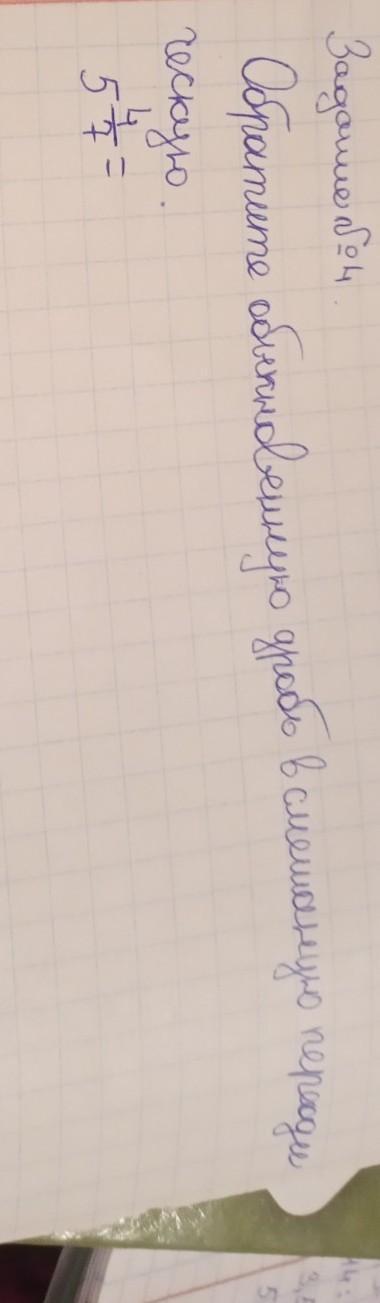 Задание №4.
Обратите обыкновенную дробь в смешаную периоди
ческую.
5 4/7 =
14: